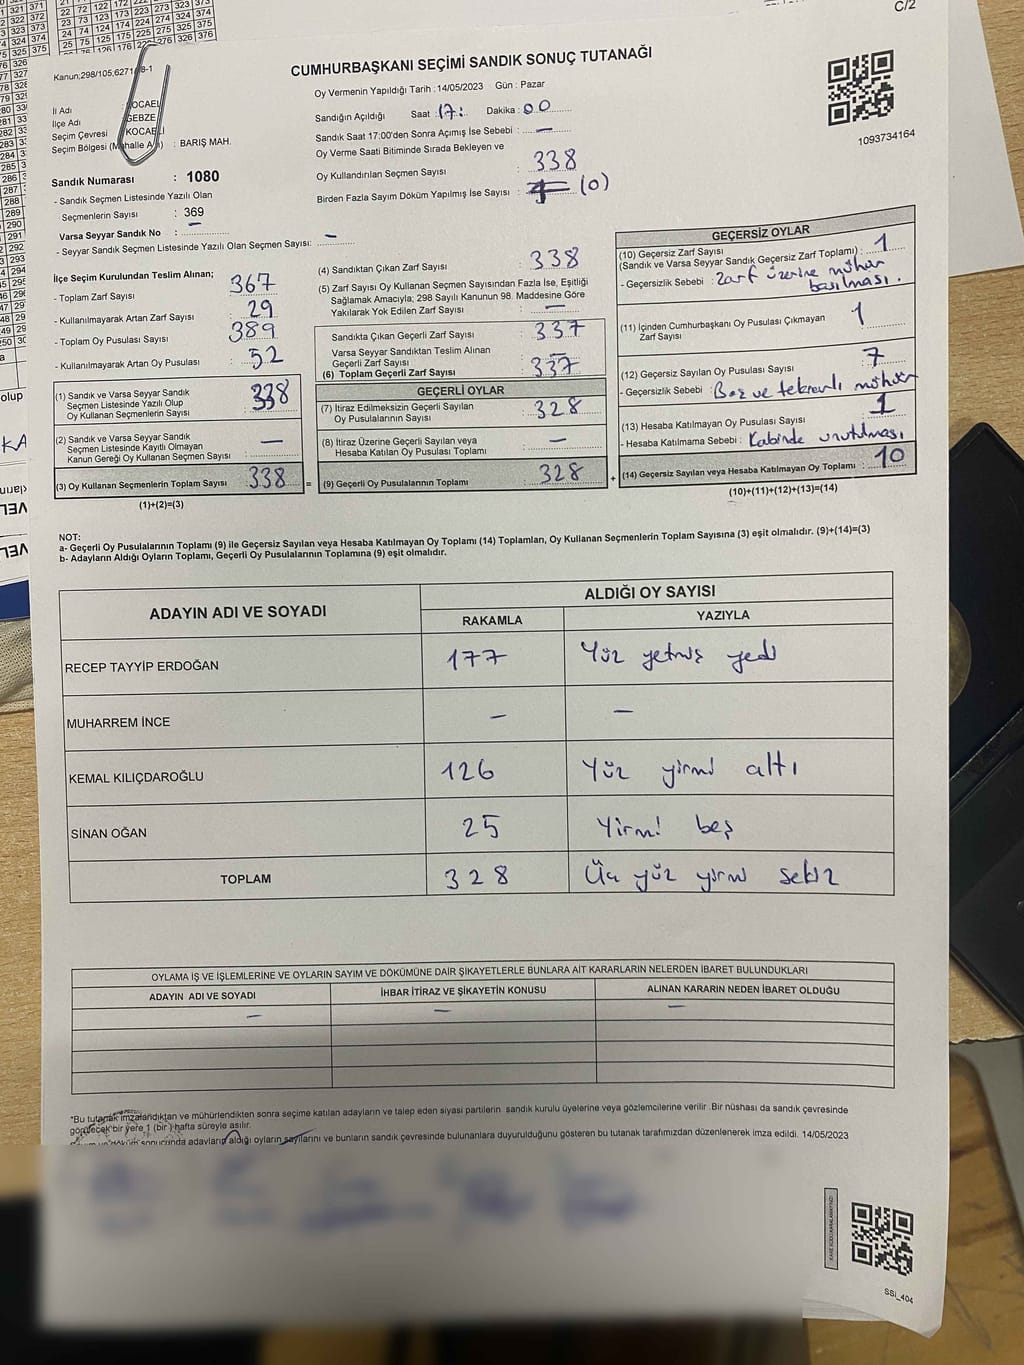 C/2
CUMHURBAŞKANI SEÇİMİ SANDIK SONUÇ TUTANAĞI
Kanun,298/105,6271/8-1
Oy Vermenin Yapıldığı Tarih :14/05/2023 Gün : Pazar
İl Adı : KOCAELİ
İlçe Adı : GEBZE
Seçim Çevresi : KOCAELİ
Seçim Bölgesi (Mahalle Adı) : BARIŞ MAH.
Sandığın Açıldığı Saat : 17: Dakika : 00
Sandık Saat 17:00'den Sonra Açımış İse Sebebi : —
Oy Verme Saati Bitiminde Sırada Bekleyen ve
Oy Kullandırılan Seçmen Sayısı : 338
Birden Fazla Sayım Döküm Yapılmış İse Sayısı : (0)
1093734164
Sandık Numarası : 1080
- Sandık Seçmen Listesinde Yazılı Olan
Seçmenlerin Sayısı : 369
Varsa Seyyar Sandık No : —
- Seyyar Sandık Seçmen Listesinde Yazılı Olan Seçmen Sayısı: —
İlçe Seçim Kurulundan Teslim Alınan;
- Toplam Zarf Sayısı : 367
- Kullanılmayarak Artan Zarf Sayısı : 29
- Toplam Oy Pusulası Sayısı : 389
- Kullanılmayarak Artan Oy Pusulası : 52
(1) Sandık ve Varsa Seyyar Sandık
Seçmen Listesinde Yazılı Olup
Oy Kullanan Seçmenlerin Sayısı : 338
(2) Sandık ve Varsa Seyyar Sandık
Seçmen Listesinde Kayıtlı Olmayan
Kanun Gereği Oy Kullanan Seçmen Sayısı : —
(3) Oy Kullanan Seçmenlerin Toplam Sayısı : 338 =
(1)+(2)=(3)
(4) Sandıktan Çıkan Zarf Sayısı : 338
(5) Zarf Sayısı Oy Kullanan Seçmen Sayısından Fazla İse, Eşitliği
Sağlamak Amacıyla; 298 Sayılı Kanunun 98. Maddesine Göre
Yakılarak Yok Edilen Zarf Sayısı : —
Sandıkta Çıkan Geçerli Zarf Sayısı : 337
Varsa Seyyar Sandıktan Teslim Alınan
Geçerli Zarf Sayısı : —
(6) Toplam Geçerli Zarf Sayısı : 337
GEÇERLİ OYLAR
(7) İtiraz Edilmeksizin Geçerli Sayılan
Oy Pusulalarının Sayısı : 328
(8) İtiraz Üzerine Geçerli Sayılan veya
Hesaba Katılan Oy Pusulası Toplamı : —
(9) Geçerli Oy Pusulalarının Toplamı : 328 +
GEÇERSİZ OYLAR
(10) Geçersiz Zarf Sayısı
(Sandık ve Varsa Seyyar Sandık Geçersiz Zarf Toplamı) : 1
- Geçersizlik Sebebi : Zarf üzerine mühür
basılması.
(11) İçinden Cumhurbaşkanı Oy Pusulası Çıkmayan
Zarf Sayısı : 1
(12) Geçersiz Sayılan Oy Pusulası Sayısı : 7
- Geçersizlik Sebebi : Boş ve tekrarlı mühür
(13) Hesaba Katılmayan Oy Pusulası Sayısı : 1
- Hesaba Katılmama Sebebi : Kabinde unutulması
(14) Geçersiz Sayılan veya Hesaba Katılmayan Oy Toplamı : 10
(10)+(11)+(12)+(13)=(14)
NOT:
a- Geçerli Oy Pusulalarının Toplamı (9) ile Geçersiz Sayılan veya Hesaba Katılmayan Oy Toplamı (14) Toplamları, Oy Kullanan Seçmenlerin Toplam Sayısına (3) eşit olmalıdır. (9)+(14)=(3)
b- Adayların Aldığı Oyların Toplamı, Geçerli Oy Pusulalarının Toplamına (9) eşit olmalıdır.
ADAYIN ADI VE SOYADI
ALDIĞI OY SAYISI
RAKAMLA YAZIYLA
RECEP TAYYİP ERDOĞAN 177 Yüz yetmiş yedi
MUHARREM İNCE — —
KEMAL KILIÇDAROĞLU 126 Yüz yirmi altı
SİNAN OĞAN 25 Yirmi beş
TOPLAM 328 Üç yüz yirmi sekiz
OYLAMA İŞ VE İŞLEMLERİNE VE OYLARIN SAYIM VE DÖKÜMÜNE DAİR ŞİKAYETLERLE BUNLARA AİT KARARLARIN NELERDEN İBARET BULUNDUKLARI
ADAYIN ADI VE SOYADI İHBAR İTİRAZ VE ŞİKAYETİN KONUSU ALINAN KARARIN NEDEN İBARET OLDUĞU
— — —
*Bu tutanak imzalandıktan ve mühürlendikten sonra seçime katılan adayların ve talep eden siyasi partilerin sandık kurulu üyelerine veya gözlemcilerine verilir. Bir nüshası da sandık çevresinde
görülecek bir yere 1 (bir) hafta süreyle asılır.
sonucunda adayların aldığı oyların sayılarını ve bunların sandık çevresinde bulunanlara duyurulduğunu gösteren bu tutanak tarafımızdan düzenlenerek imza edildi. 14/05/2023
SSİ_404